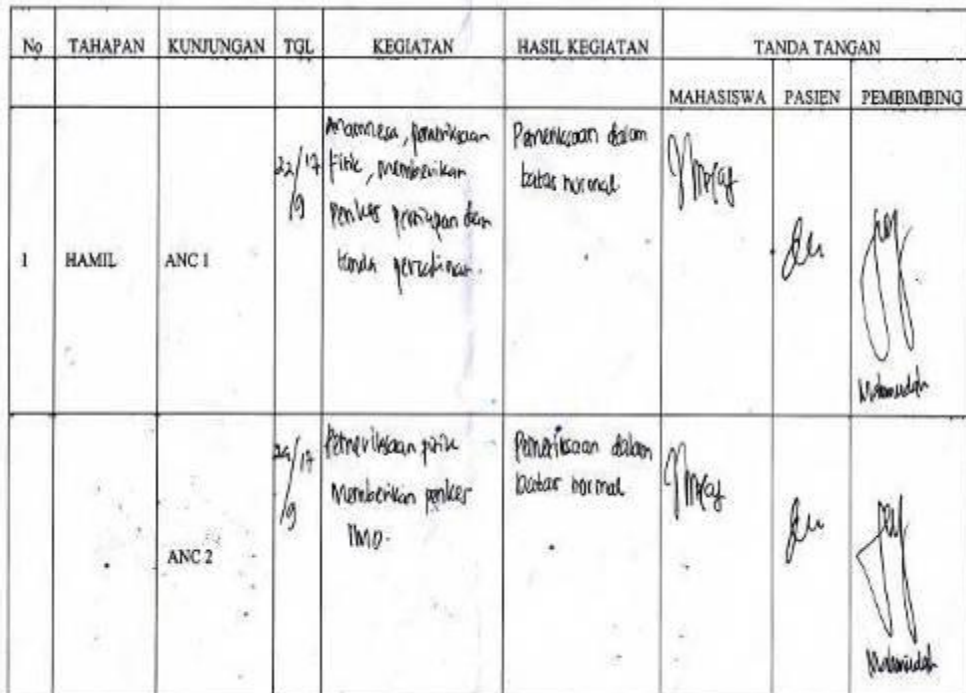 No TAHAPAN KUNJUNGAN TGL KEGIATAN HASIL KEGIATAN TANDA TANGAN
MAHASISWA PASIEN PEMBIMBING
1 HAMIL ANC 1
22/17
/9
Anamnesa, pemeriksaan
fisik, memberikan
penkes persiapan dan
tanda persalinan.
Pemeriksaan dalam
batas normal
Mahmudah
ANC 2
29/17
/9
Pemeriksaan fisik
Memberikan penkes
IMD.
Pemeriksaan dalam
batas normal
Mahmudah